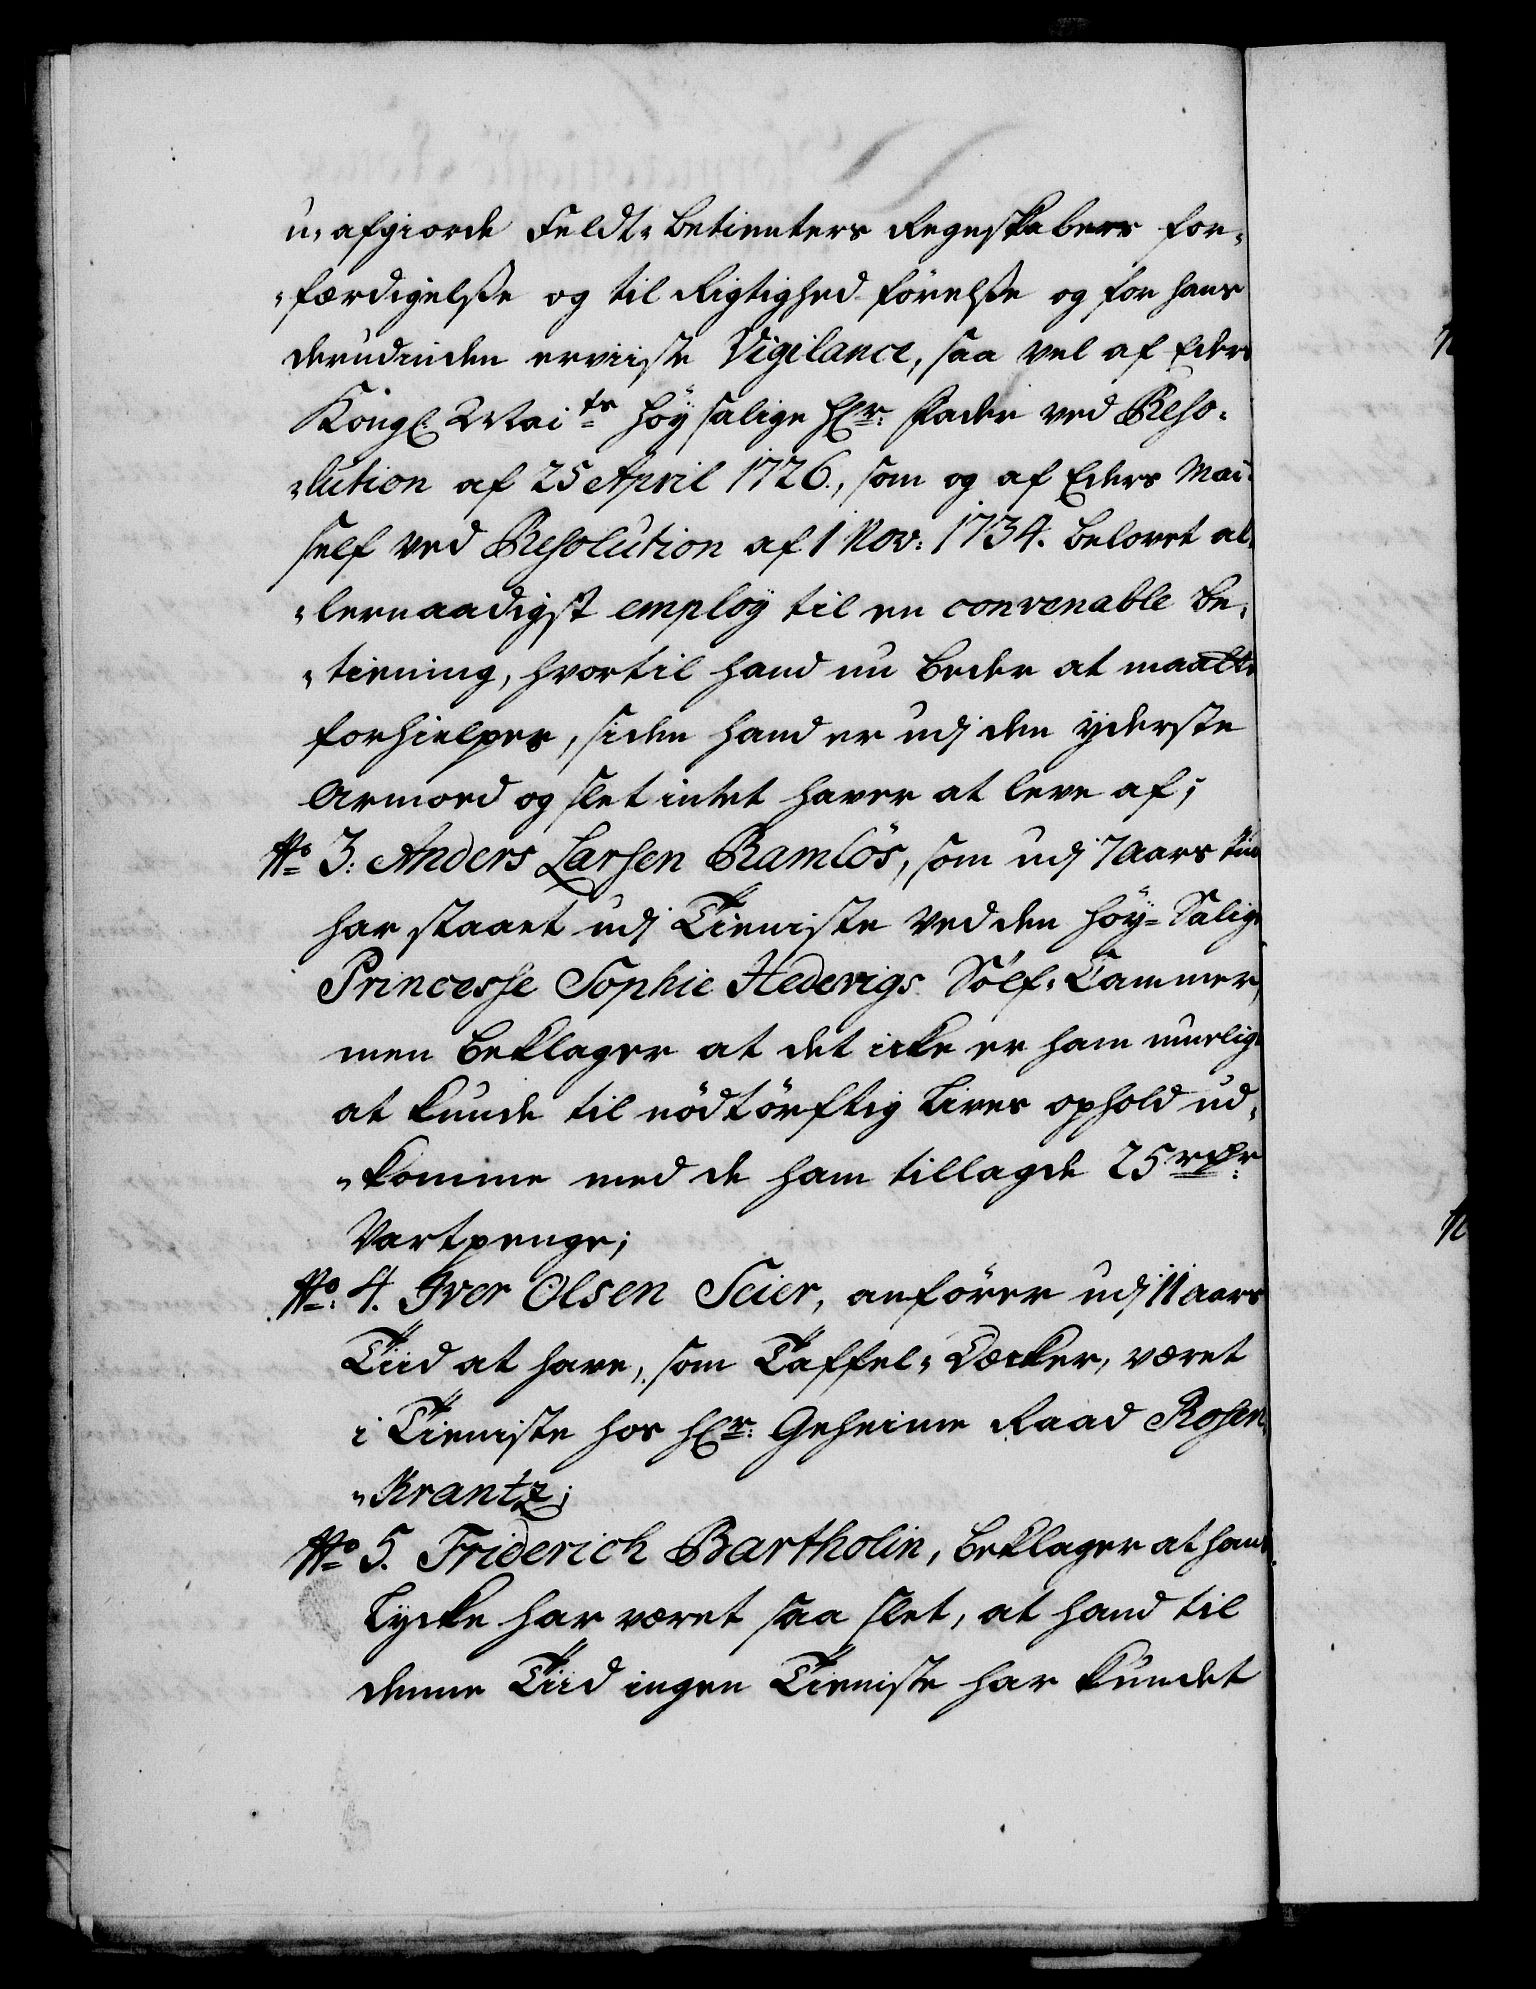 u-afgiorde Feldt-Betienters Regnskabers for-
-færdigelsse og til Rigtighed-förelsse og for hans
derudinden erviiste Vigilance, saa vel af Eders
Kongl. Mai:ts höysalige Hr: Fader ved Reso-
-lution af 25 April 1726., som og af Eders Mai:
self ved Resolution af 1 Nov: 1734. belovet al-
-lernaadigst employ til en convenable Be-
-tiening, hvortil hand nu beder at maatte
forhielpes, siden hand er udj den yderste
Armoed og slet intet haver at leve af;
No 3. Anders Larsen Ramlös, som udj 7 Aars Tiid
har staaet udj Tieniste ved den Höy-Salige
Princesse Sophie Hedevigs Sölf-Cammer,
men beklager at det icke er ham muelig
at kunde til nödtörftig Lives ophold ud-
-komme med de ham tillagde 25 rdr:
Vartpenge;
No: 4. Iver Olsen Seier, anförer udj 11 Aars
Tiid at have, som Taffel-Decker, været
i Tieniste hos Hr: Geheime Raad Rosen-
-Krantz;
No 5. Friderich Bartholin, beklager at hans
Lycke har været saa slet, at hand til
denne Tiid ingen Tieniste har kundet